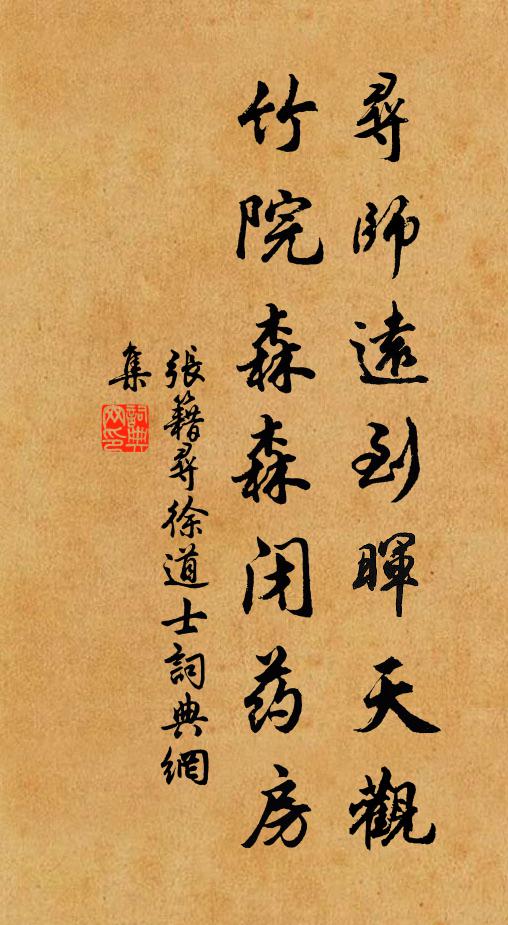 尋師遠到暉天觀
竹院森森闭药房
張籍尋徐道士詞典網
集
詞典
网印